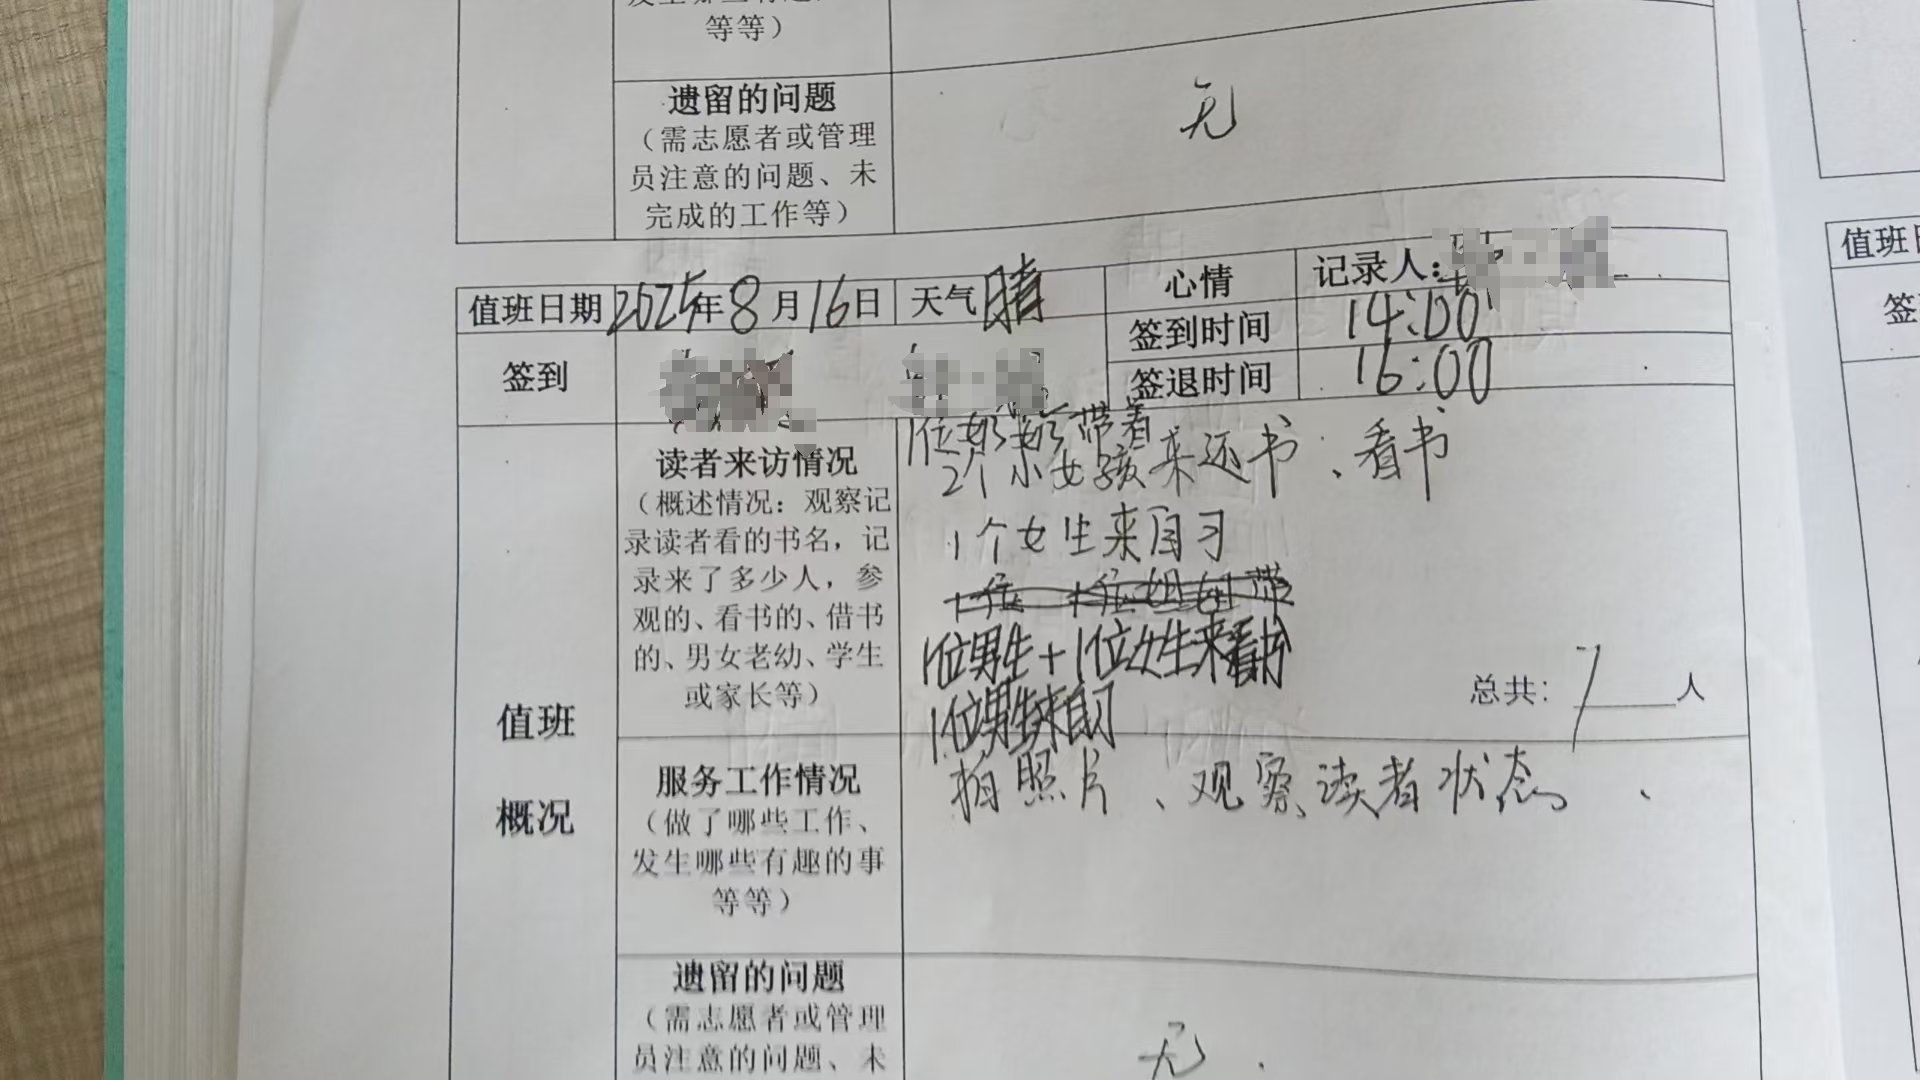 等等）
遗留的问题
（需志愿者或管理
员注意的问题、未
完成的工作等）
无
值班日期 2025年8月16日 天气 晴 心情 记录人：
签到时间 14:00
签到
签退时间 16:00
读者来访情况
（概述情况：观察记
录读者看的书名，记
录来了多少人，参
观的、看书的、借书
的、男女老幼、学生
或家长等）
1位奶奶带着
2个小女孩来还书、看书
1个女生来自习
1位男生+1位女生来看书
1位男生来自习
总共：7人
值班
概况
服务工作情况
（做了哪些工作、
发生哪些有趣的事
等等）
拍照片、观察读者状态、
遗留的问题
（需志愿者或管理
员注意的问题、未
无.
值班日
签